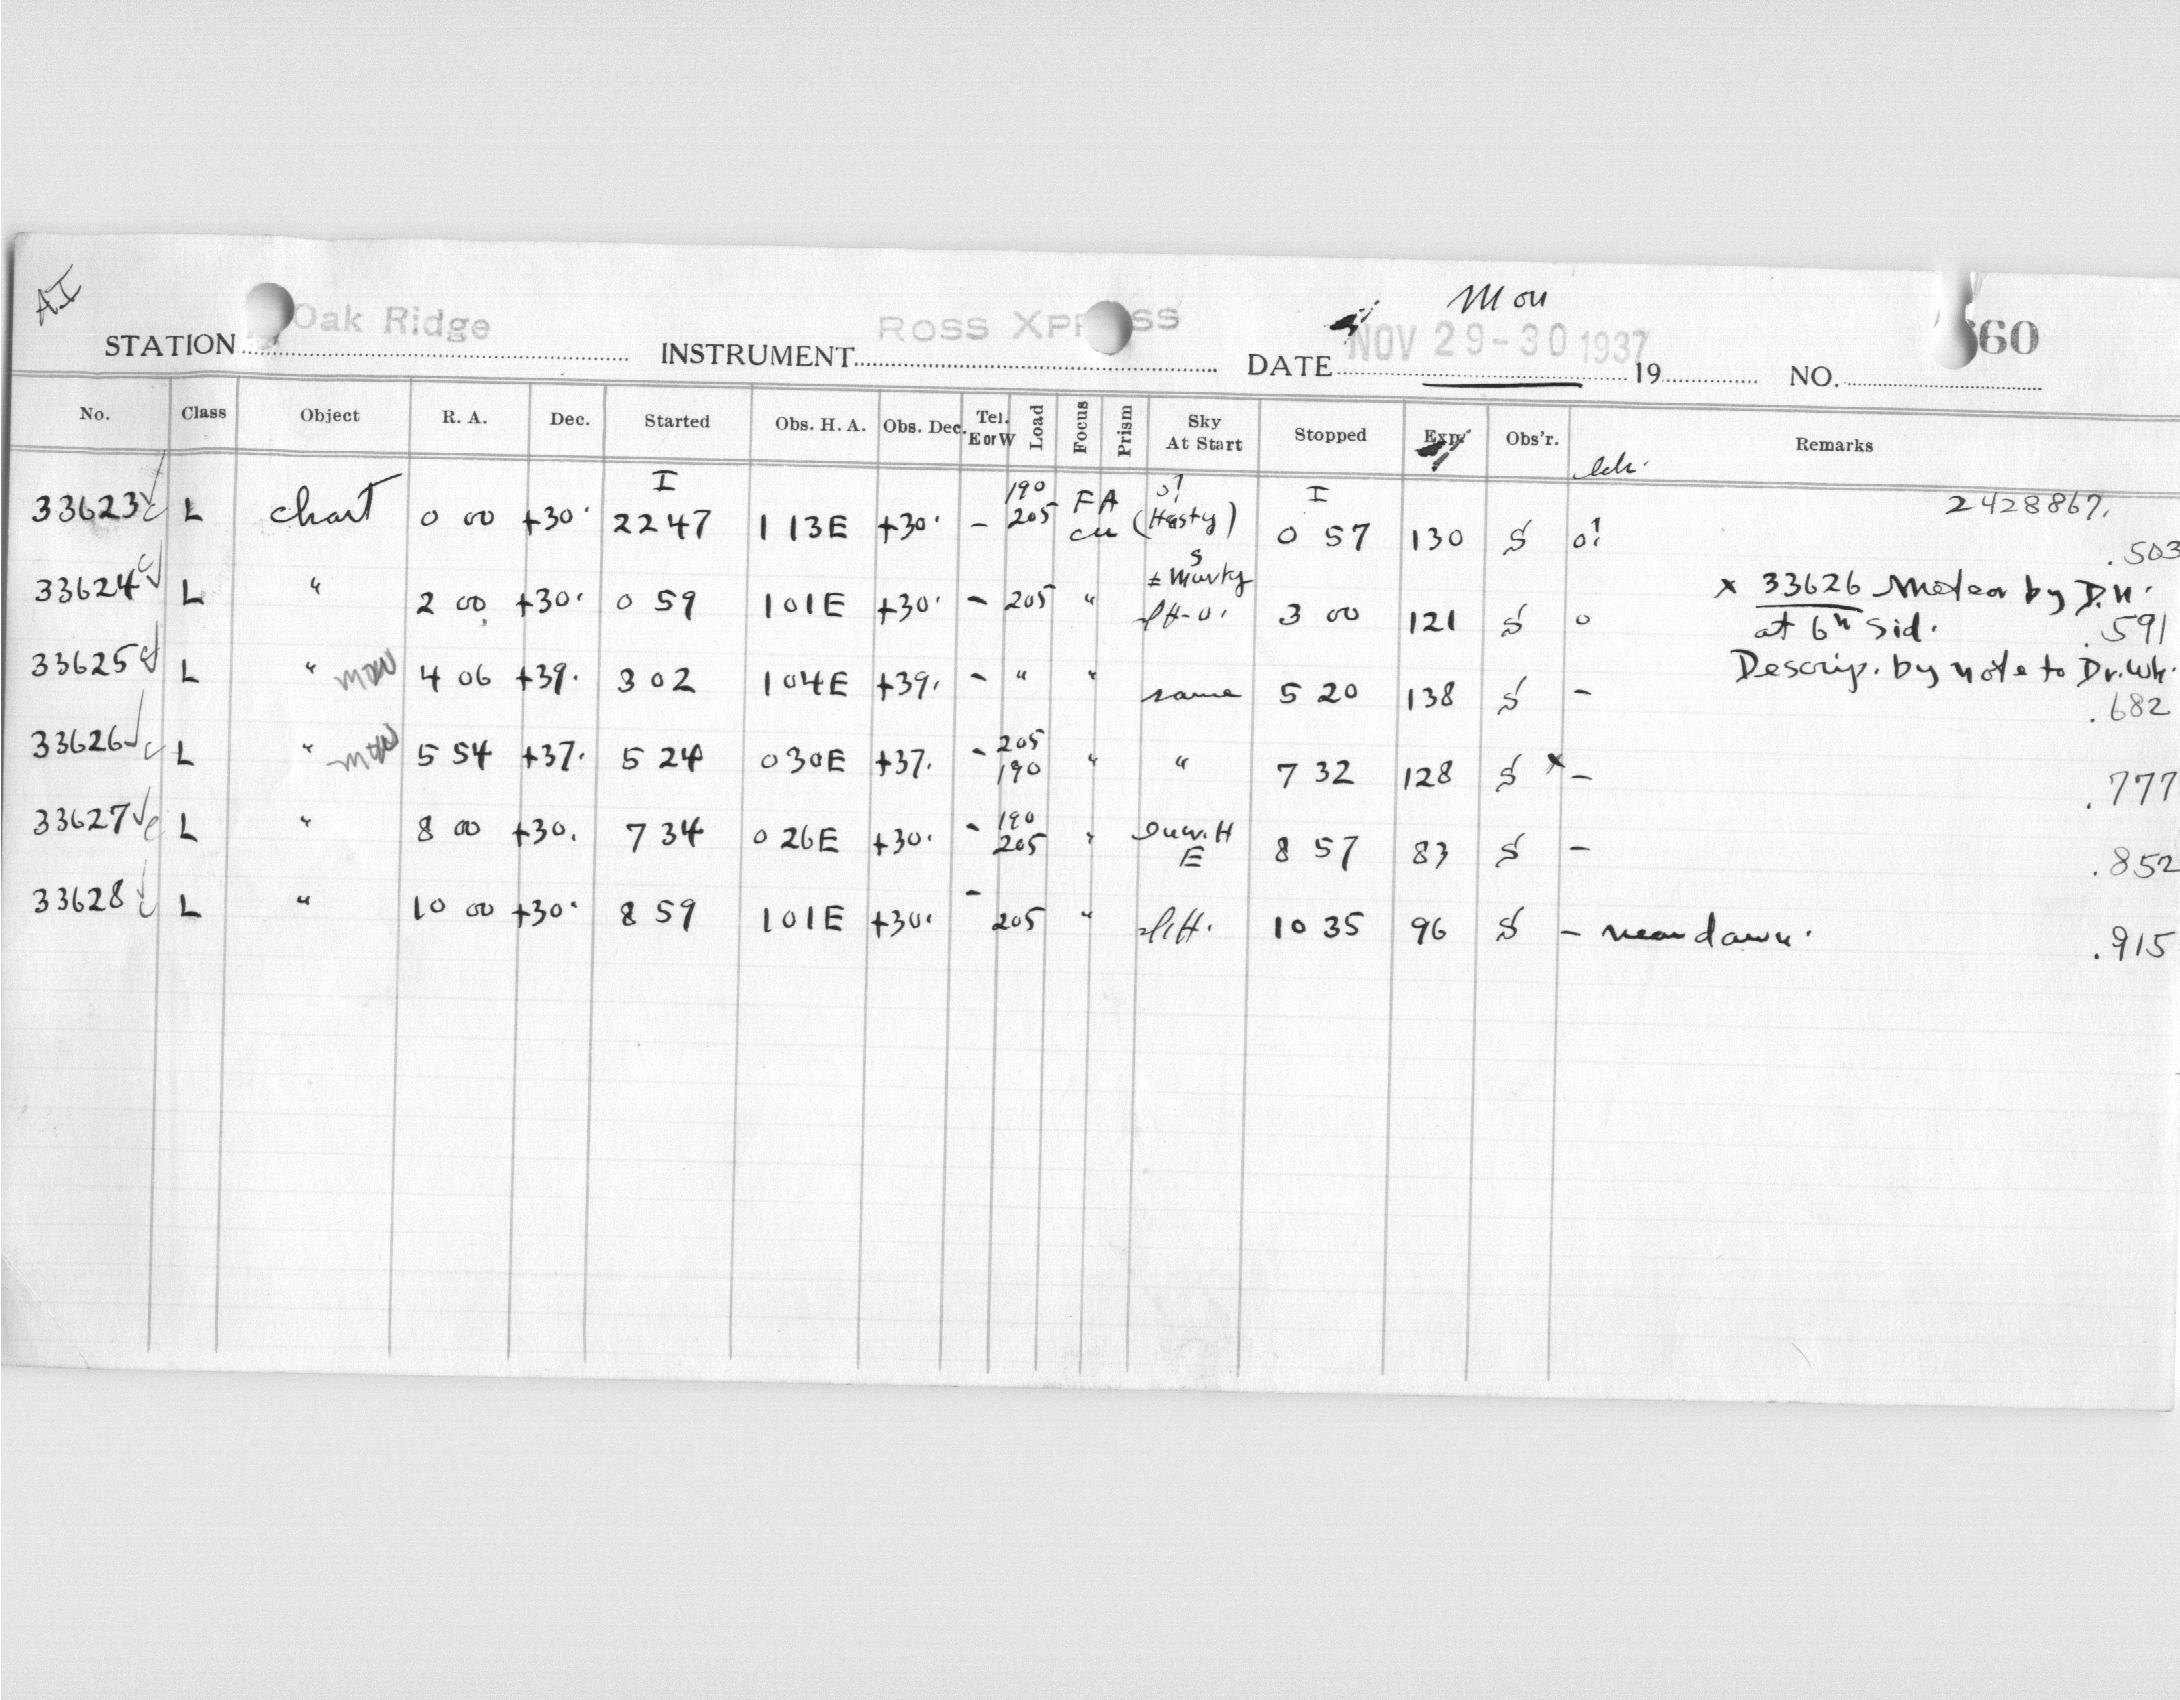 AI
Mon
STATION Oak Ridge INSTRUMENT ROSS XPRESS DATE NOV 29-30 1937 19 NO. 60
No. Class Object R. A. Dec. Started Obs. H. A. Obs. Dec. Tel. E or W Load Focus Prism Sky At Start Stopped Exp. Obs'r. Remarks
I 190 FA o! I 2428867.
33623 L chart 0 00 +30° 2247 1 13E +30° – 205 cu (Hasty) 0 57 130 S o! .503
33624 L " 2 00 +30° 0 59 1 01E +30° – 205 " 3 00 121 S o × 33626 Meteor by D.H. at 6h Sid. .591
33625 L " MDW 4 06 +39° 3 02 1 04E +39° – " " same 5 20 138 S – Descrip. by note to Dr. Wh. .682
33626 L " MDW 5 54 +37° 5 24 0 30E +37° – 205 190 " " 7 32 128 S × – .777
33627 L " 8 00 +30° 7 34 0 26E +30° – 190 205 " E 8 57 83 S – .852
33628 L " 10 00 +30° 8 59 1 01E +30° – 205 " 10 35 96 S – near dawn. .915